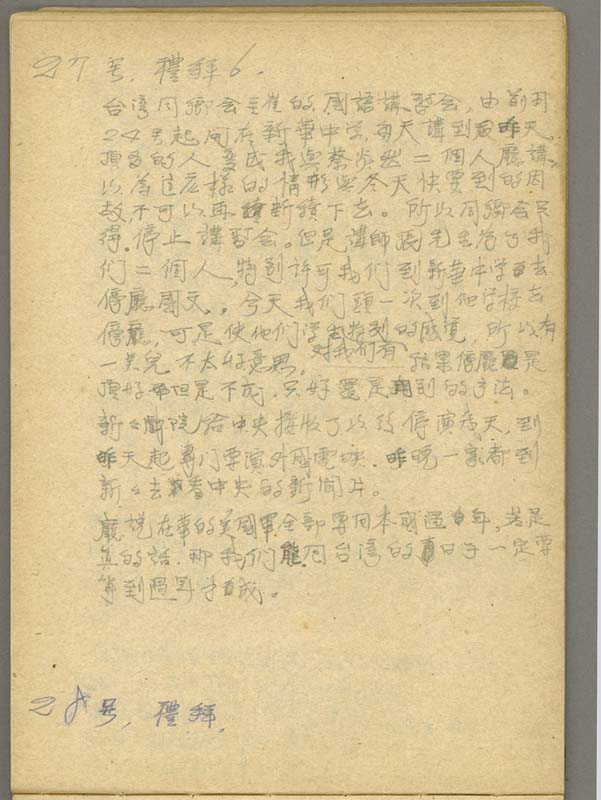 27号,禮拜6.
台湾同鄉会主崔的國語講習会,由前月
24号起開在新華中学,每天講到昨天,
頂多的人変成我與蔡 二個人廳講,
以為這広樣的情形與冬天快要到的因
故不可以再断續下去。所以同鄉会只
得停止講習会。但是講師張先生為了我
们二個人,特别許可我们到新華中学去
傍廳國文。今天我们頭一次到他学校去
傍廳,可是使他们学生特别的感覚,所以有
一点兒不太好意思。对我们有 结果傍廳是
頂好 但是不成,只好還是用别的方法。
新々戲院,给中央接收了以後停演幾天,到
昨天起專门要演外國電映.昨晚一家都到
新々去看中央的新聞片。
廳説在華的美國軍全部要回本國過年,若是
真的話,那我们能回台湾的日子一定要
等到過年才成。
28号,禮拜.